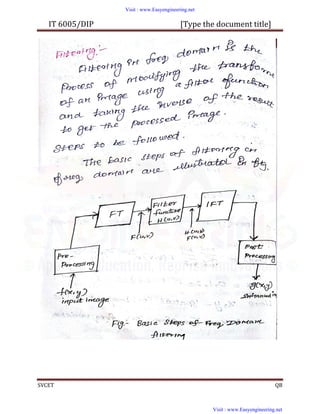 Visit : www.Easyengineering.net
IT 6005/DIP [Type the document title]
Filtering:-
Filtering in freq domain is the
Process of modifying the transform
of an image using a filter function
and taking the inverse of the result
to get the processed image.
Steps to be followed.
The basic steps of filtering in
freq domain are illustrated in fig.
FT
Filter
function
H(u,v)
IFT
F(u,v)
H(u,v)
F(u,v)
Pre-
Processing
Post
Processing
f(x,y)
input image
g(x,y)
Fig:- Basic Steps of Freq, Domain
filtering
SVCET QB
Visit : www.Easyengineering.net